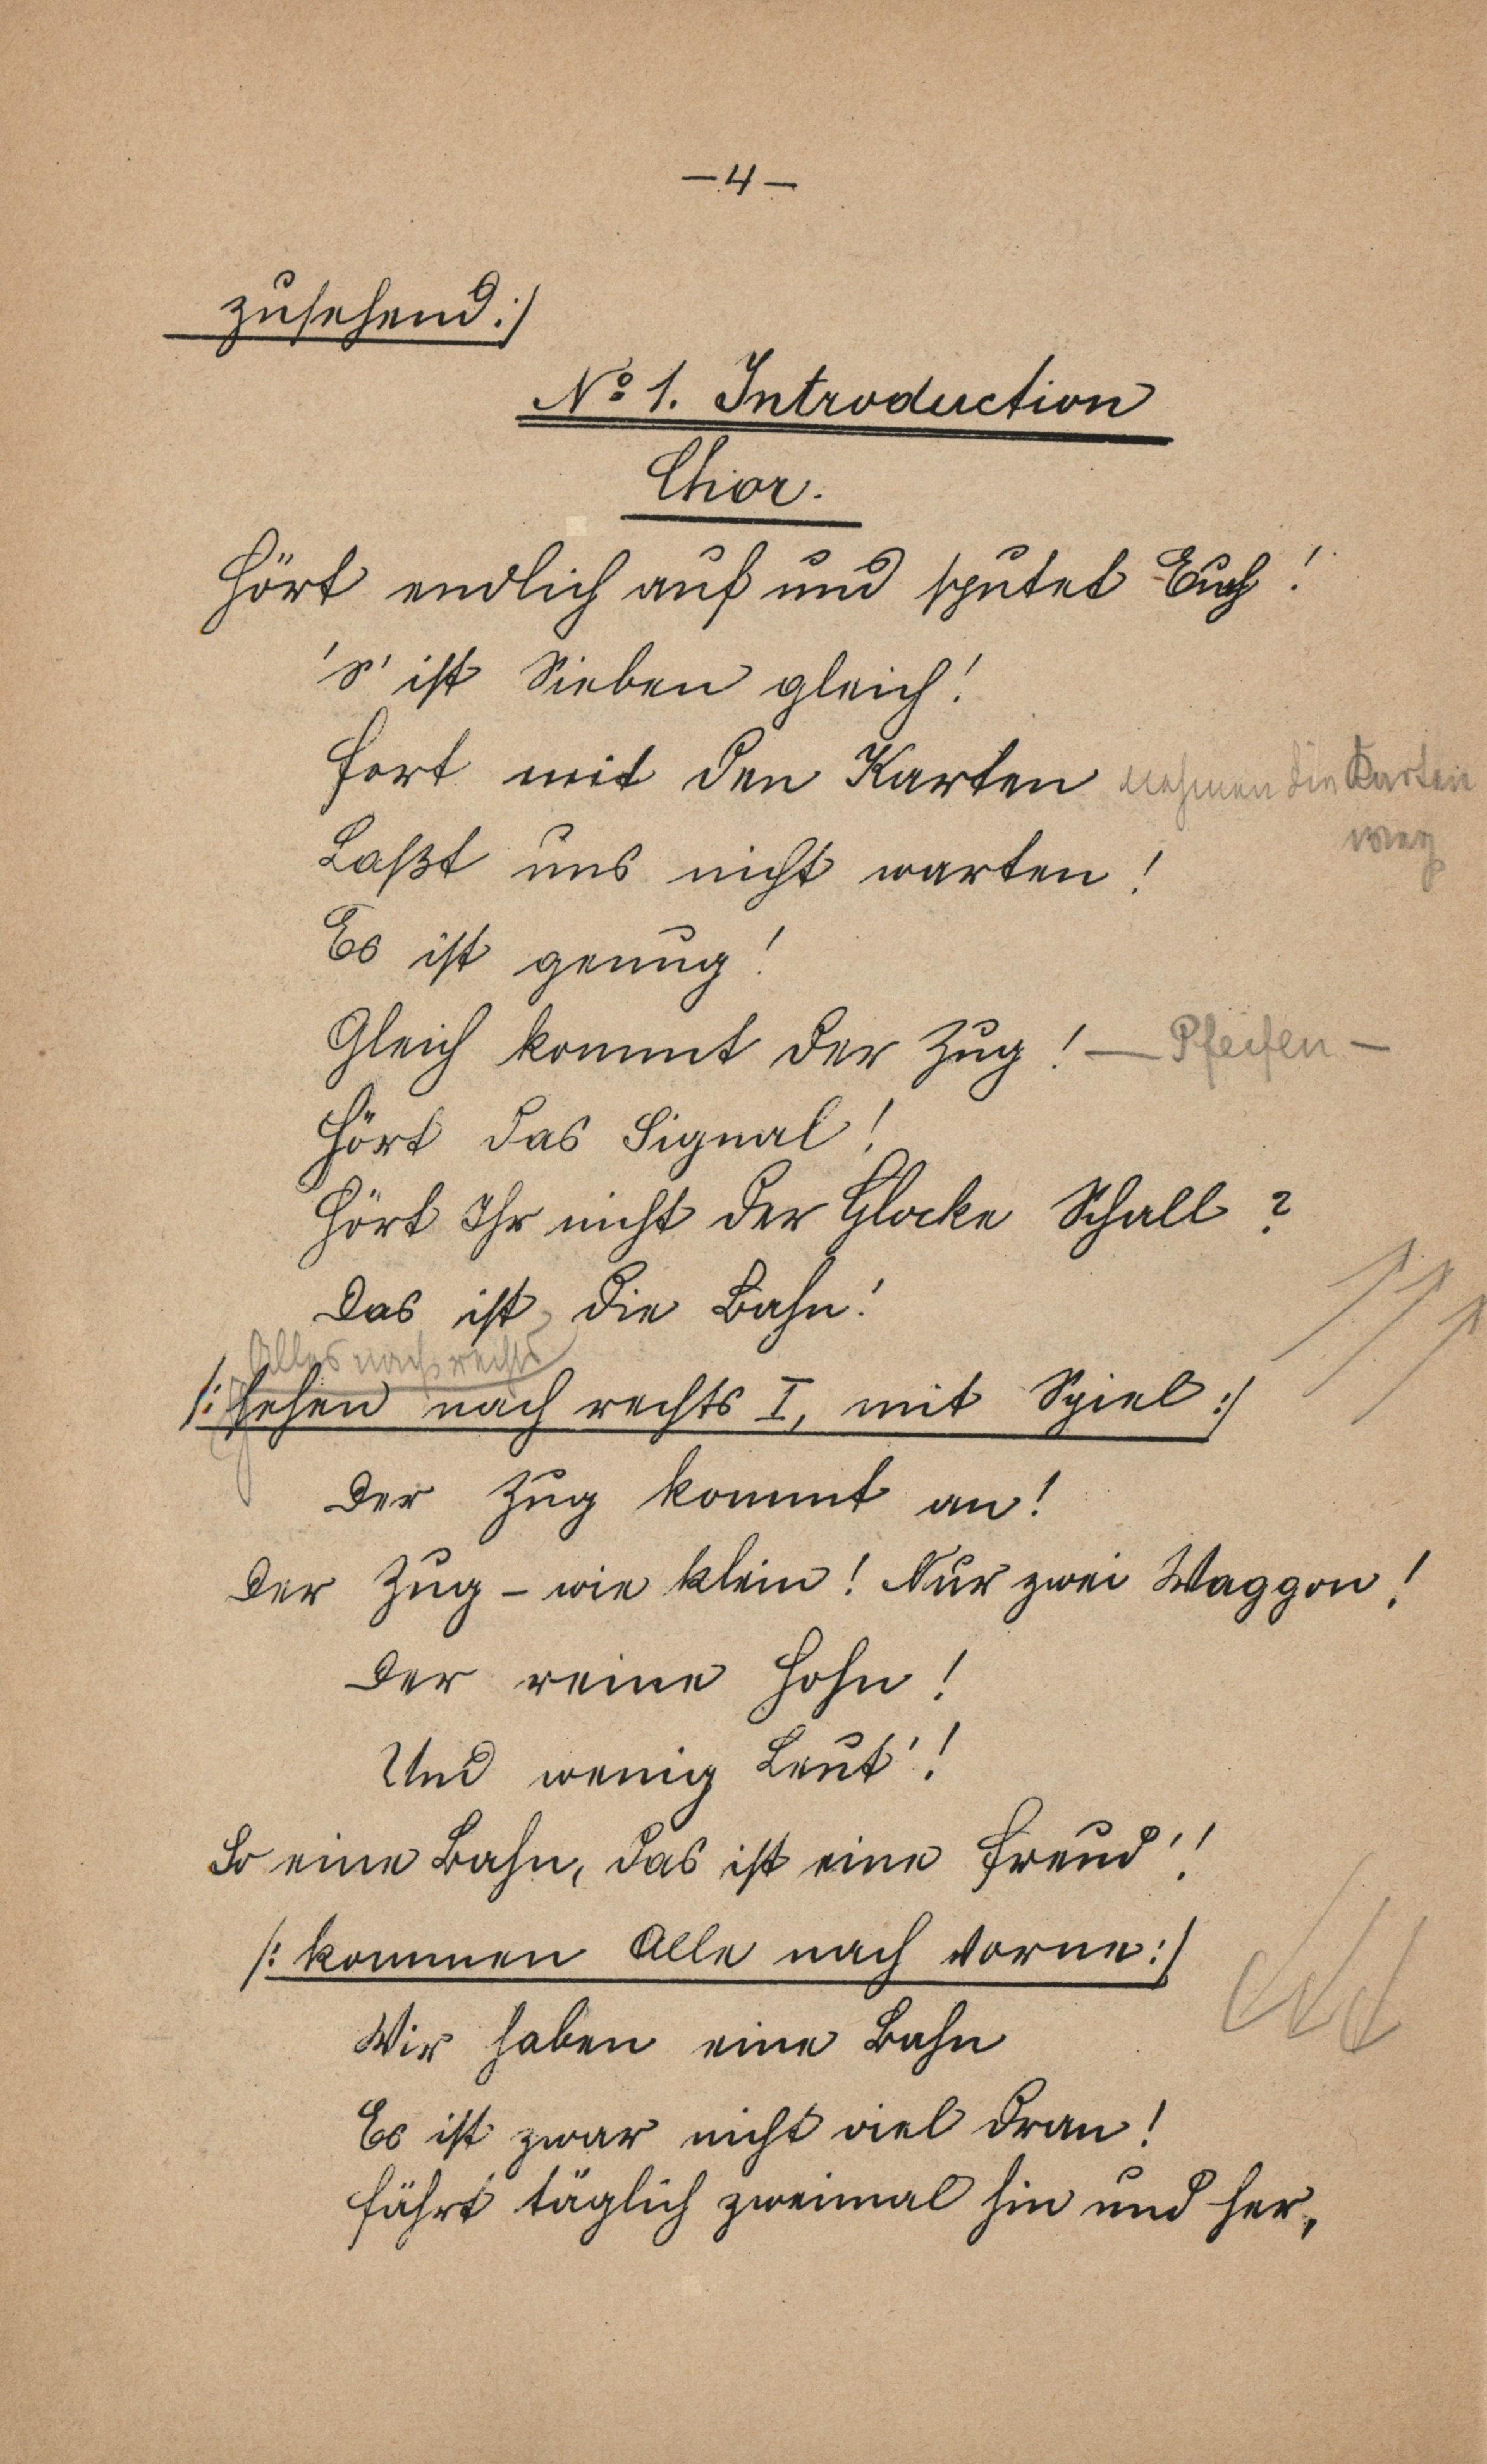 — 4 —
zusehend:/
No 1. Introduction
Chor.
Hört endlich auf und sputet Euch!
's' ist Sieben gleich!
Fort mit den Karten nehmen die Karten
weg
Laßt uns nicht warten!
Es ist genug!
Gleich kommt der Zug! — Pfeifen —
Hört das Signal!
Hört Ihr nicht der Glocke Schall?
Das ist die Bahn!
Alles nach rechts
/: sehen nach rechts I, mit Spiel :/
Der Zug kommt an!
Der Zug – wie klein! Nur zwei Waggon!
Der reine Hohn!
Und wenig Leut'!
So eine Bahn, das ist eine Freud'!
/: kommen Alle nach vorne :/
Wir haben eine Bahn
Es ist zwar nicht viel dran!
Fährt täglich zweimal hin und her,